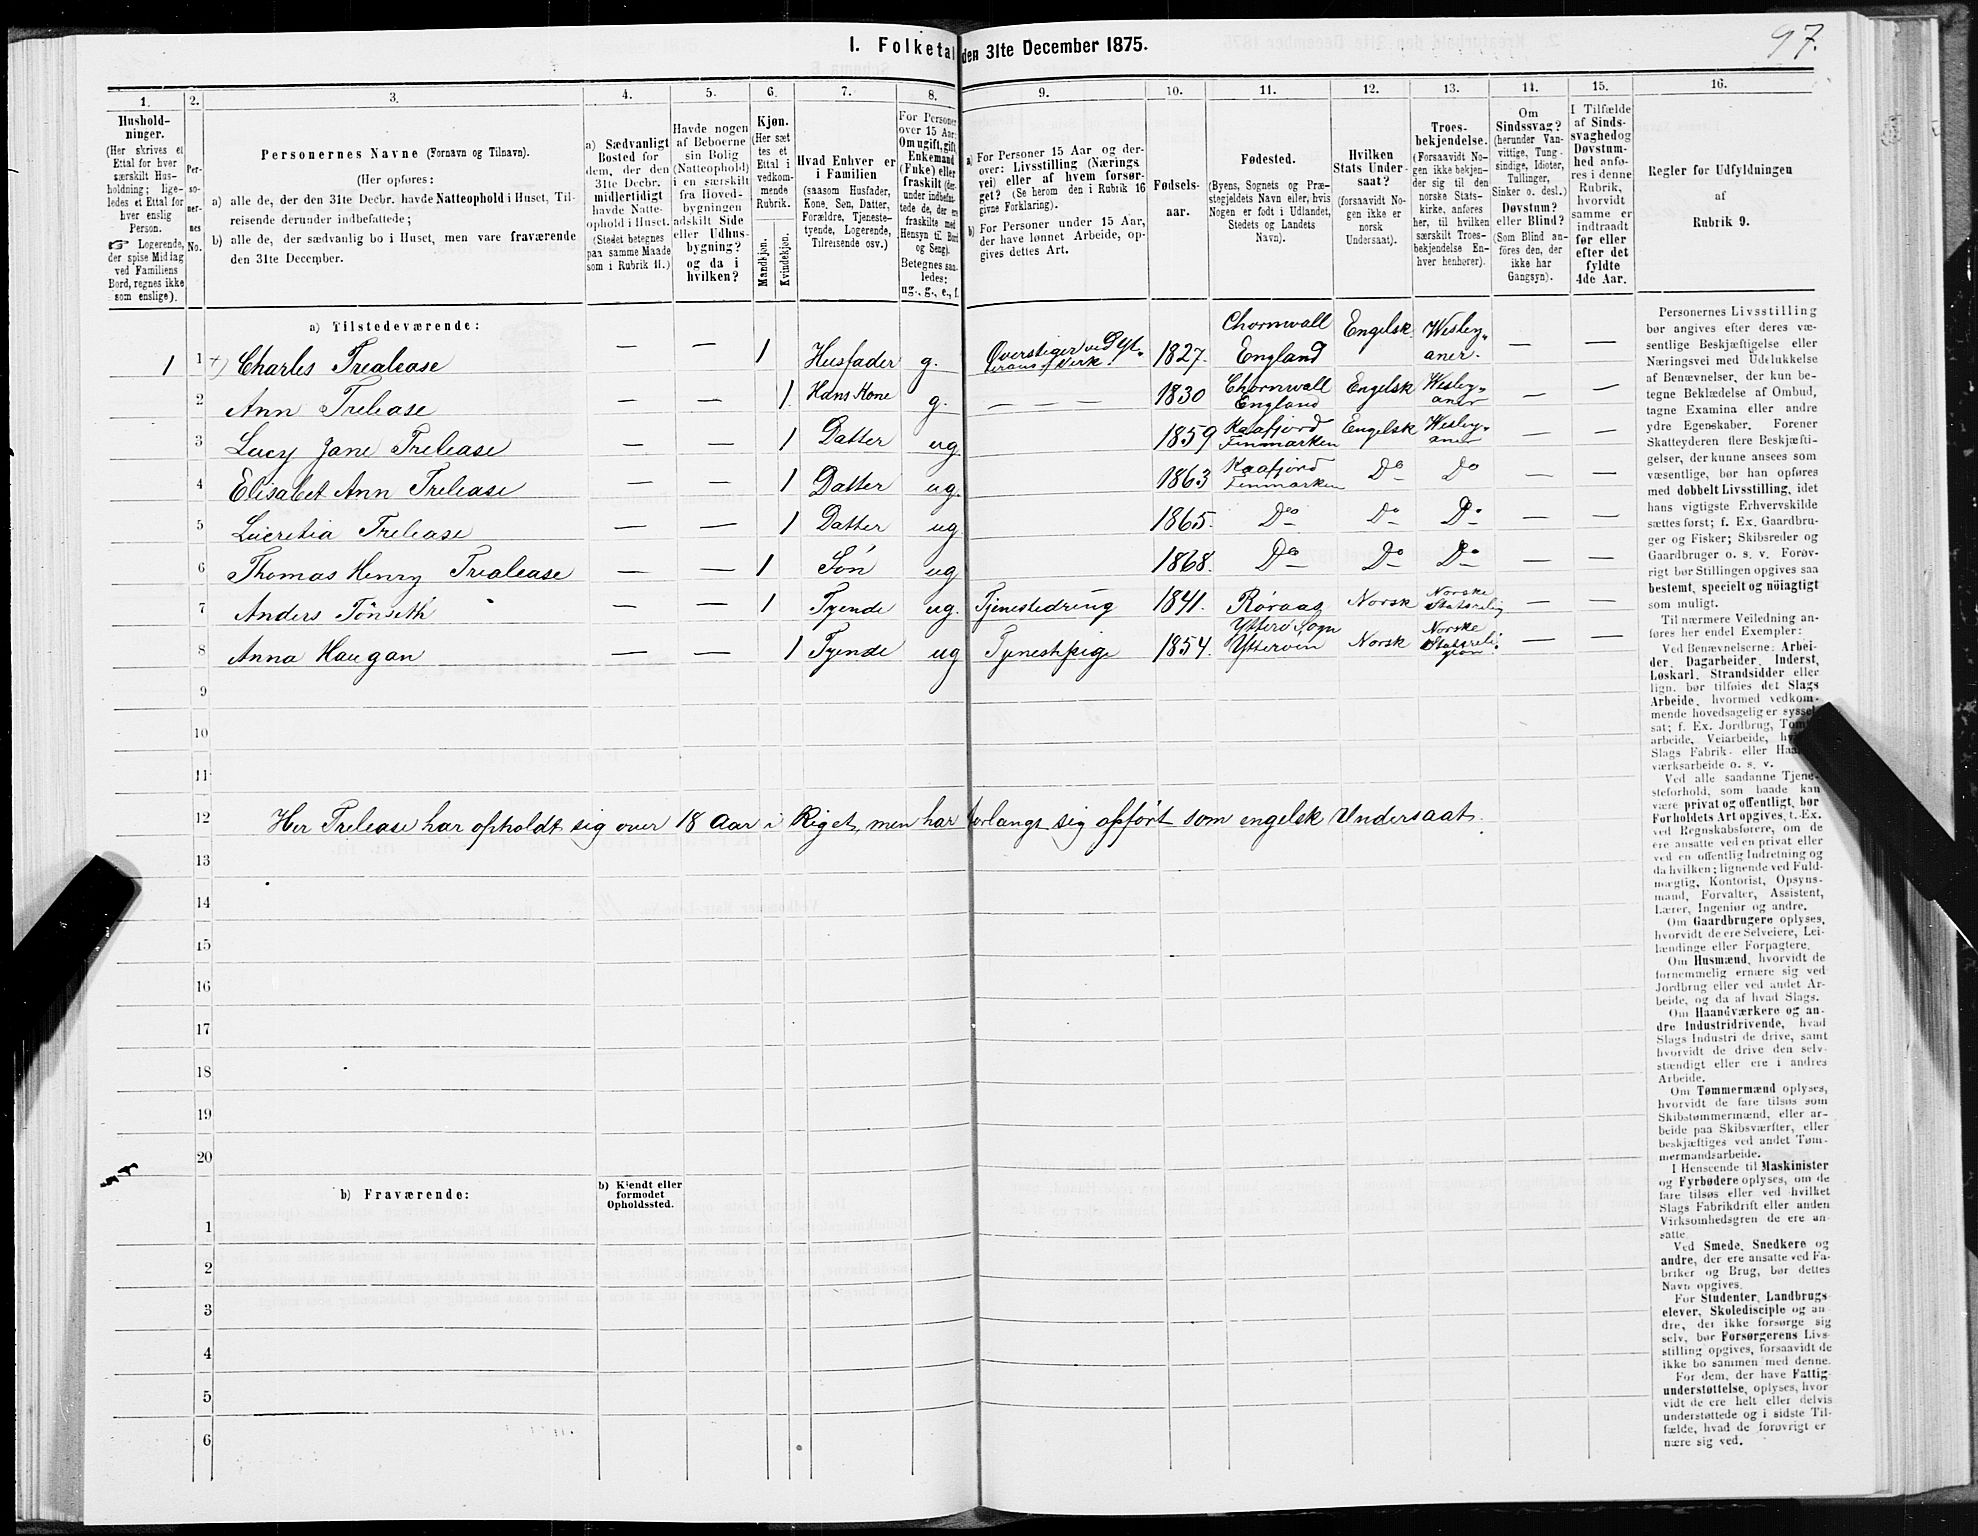 97.
I. Folketal den 31te December 1875.
1. 2. 3. 4. 5. 6. 7. 8. 9. 10. 11. 12. 13. 14. 15. 16.
Hushold-
ninger.
(Her skrives et
Ettal for hver
særskilt Hus-
holdning; lige-
ledes et Ettal for
hver enslig
Person.
☞ Logerende,
der spise Middag
ved Familiens
Bord, regnes ikke
som enslige).
Per-
so-
ner-
nes
No.
Personernes Navne (Fornavn og Tilnavn).
(Her opføres:
a) alle de, der den 31te Decbr. havde Natteophold i Huset, Til-
reisende derunder indbefattede;
b) alle de, der sædvanlig bo i Huset, men vare fraværende
den 31te December.
a) Sædvanligt
Bosted for
dem, der den
31te Decbr.
midlertidigt
havde Natte-
ophold i Huset.
(Stedet betegnes
paa samme Maade
som i Rubrik 11.)
Havde nogen
af Beboerne
sin Bolig
(Natteophold)
i en særskilt
fra Hoved-
bygningen
adskilt Side
eller Udhus-
bygning?
og da i
hvilken?
Kjøn.
(Her sæt-
tes et
Ettal i
vedkom-
mende
Rubrik.
Mandkjøn.
Kvindekjøn.
Hvad Enhver er
i Familien
(saasom Husfader,
Kone, Søn, Datter,
Forældre, Tjeneste-
tyende, Logerende,
Tilreisende osv.)
For Personer
over 15 Aar:
Om ugift, gift,
Enkemand
(Enke) eller
fraskilt (der-
under indbefat-
tede de, der ere
fraskilte med
Hensyn til Bord
og Seng).
Betegnes saa-
ledes:
ug., g., e., f.
a) For Personer 15 Aar og der-
over: Livsstilling (Nærings-
vei) eller af hvem forsør-
get? (Se herom den i Rubrik 16
givne Forklaring).
b) For Personer under 15 Aar,
der have lønnet Arbeide, op-
gives dettes Art.
Fødsels-
aar.
Fødested.
(Byens, Sognets og Præ-
stegjeldets Navn eller, hvis
Nogen er født i Udlandet,
Stedets og Landets
Navn).
Hvilken
Stats Under-
saat?
(forsaavidt No-
gen ikke er
norsk
Undersaat).
Troes-
bekjendelse.
(Forsaavidt No-
gen ikke bekjen-
der sig til den
norske Stats-
kirke, anføres
her, til hvilken
særskilt Troes-
bekjendelse En-
hver henhører).
Om
Sindssvag?
(herunder Van-
vittige, Tung-
sindige, Idioter,
Tullinger,
Sinker o. desl.)
Døvstum?
eller Blind?
(Som Blind an-
føres den, der
ikke har
Gangsyn).
I Tilfælde
af Sinds-
svaghed og
Døvstum-
hed anfø-
res i denne
Rubrik,
hvorvidt
samme er
indtraadt
før eller
efter det
fyldte
4de Aar.
Regler for Udfyldningen
af
Rubrik 9.
a) Tilstedeværende:
1 1 Charles Trealease — — 1 Husfader g. Overstiger ved Yt- 1827. Chornwall England Engelsk Wesley-aner. — —
2 Ann Trelease — — 1. Hans Kone g. — — — 1830 Chornwall England Engelsk Wesley-aner — —
3 Lucy Jane Trelease — — 1 Datter ug 1859 Kaafjord Finmarken Engelsk Wesley-aner — —
4 Elisabet Ann Trelease — — 1 Datter ug. 1863 Kaafjord Finmarken Do Do — —
5 Lucretia Trelease — — 1 Datter ug 1865. Do Do Do — —
6 Thomas Henry Trealease — — 1 Søn ug 1868. Do Do Do —
7 Anders Tönseth — — 1 Tyende ug. Tjenestedreng 1841. Röraas Norsk Norske Statsrelig — —
8 Anna Haugan — — 1 Tyende ug Tjenestpige 1854. Ytterö Sogn Norsk Norske Statsreli-gion — —
9
10
11
12 Her Trelease har opholdt sig over 18 Aar i Riget, men har forlangt sig opfört som engelsk Undersaat.
13
14
15
16
17
18
19
20
b) Fraværende:
b) Kjendt eller
formodet
Opholdssted.
1
2
3
4
5
6
Personernes Livsstilling
bør angives efter deres væ-
sentlige Beskjæftigelse eller
Næringsvei med Udelukkelse
af Benævnelser, der kun be-
tegne Beklædelse af Ombud,
tagne Examina eller andre
ydre Egenskaber. Forener
Skatteyderen flere Beskjæfti-
gelser, der kunne ansees som
væsentlige, bør han opføres
med dobbelt Livsstilling, idet
hans vigtigste Erhvervskilde
sættes først; f. Ex. Gaardbru-
ger og Fisker; Skibsreder og
Gaardbruger o. s. v. Forøv-
rigt bør Stillingen opgives saa
bestemt, specielt og nöiagtigt
som muligt.
Til nærmere Veiledning an-
føres her endel Exempler:
Ved Benævnelserne: Arbei-
der, Dagarbeider, Inderst,
Løskarl, Strandsidder eller
lign. bør tilføies det Slags
Arbeide, hvormed vedkom-
mende hovedsagelig er syssel-
sat; f. Ex. Jordbrug, Tomt-
arbeide, Veiarbeide,
Slags Fabrik- eller
værksarbeide o. s. v.
Ved alle saadanne Tjene-
steforhold, som baade kan
være privat og offentligt, bør
Forholdets Art opgives, t. Ex.
ved Regnskabsførere, om de
ere ansatte ved en privat eller
ved en offentlig Indretning og
da hvilken; lignende ved Fuld-
mægtig, Kontorist, Opsyns-
mand, Forvalter, Assistent,
Lærer, Ingeniør og andre.
Om Gaardbrugere oplyses,
hvorvidt de ere Selveiere, Lei-
lændinge eller Forpagtere.
Om Husmænd, hvorvidt de
fornemmelig ernære sig ved
Jordbrug eller ved andet Ar-
beide, og da af hvad Slags.
Om Haandværkere og an-
dre Industridrivende, hvad
Slags Industri de drive, samt
hvorvidt de drive den selv-
stændigt eller ere i andres
Arbeide.
Om Tømmermænd oplyses,
hvorvidt de fare tilsøs som
Skibstømmermænd, eller ar-
beide paa Skibsværfter, eller
beskjæftiges ved andet Tøm-
mermandsarbeide.
I Henseende til Maskinister
og Fyrbødere oplyses, om de
fare tilsøs eller ved hvilket
Slags Fabrikdrift eller anden
Virksomhedsgren de ere an-
satte.
Ved Smede, Snedkere og
andre, der ere ansatte ved Fa-
briker og Brug, bør dettes
Navn opgives.
For Studenter, Landbrugs-
elever, Skoledisciple og an-
dre, der ikke forsørge sig
selv, bør Forsørgerens Livs-
stilling opgives, forsaavidt de
ikke bo sammen med denne.
For dem, der have Fattig-
understøttelse, oplyses, hvor-
vidt de ere helt eller delvis
understøttede og i sidste Til-
fælde, hvad de forøvrigt er-
nære sig ved.